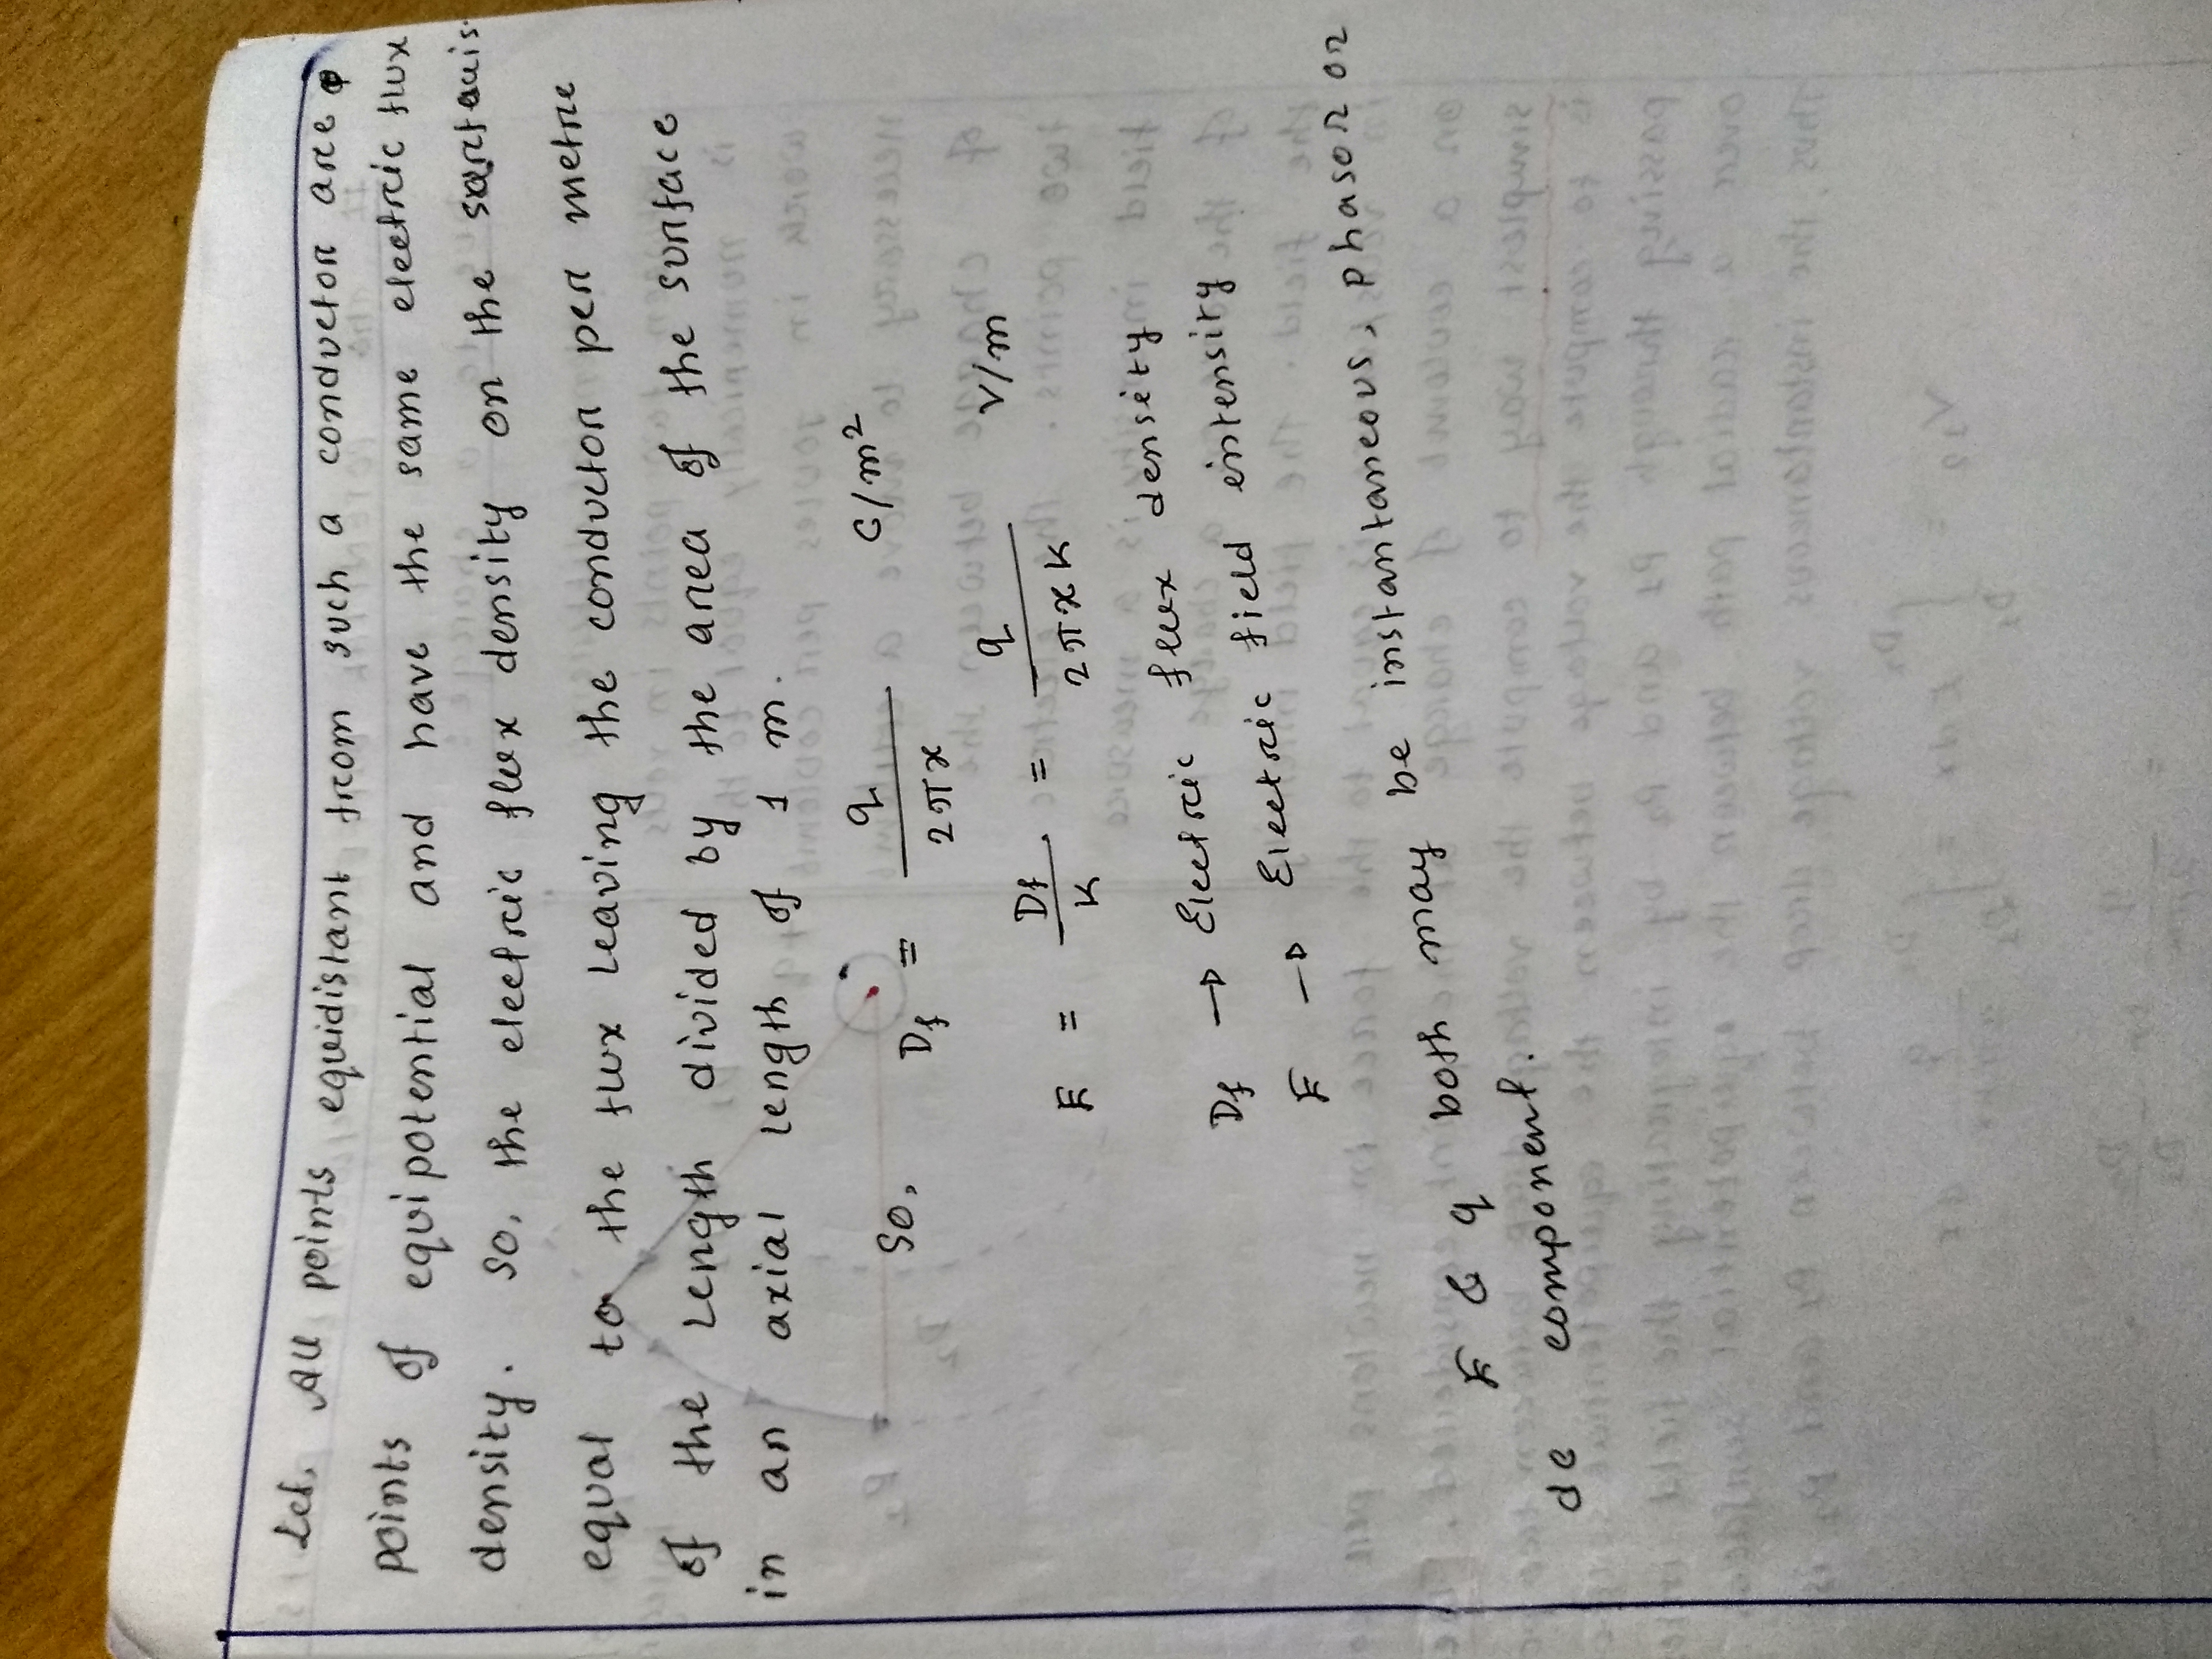 Let, All points equidistant from such a conductor are
points of equipotential and have the same electric flux
density. So, the electric flux density on the surface is
equal to the flux leaving the conductor per metre
of the length divided by the area of the surface
in an axial length of 1 m.
So, Df = q / 2πx C/m²
E = Df / K = q / 2πxK V/m
Df → Electric flux density
E → Electric field intensity
E & q both may be instantaneous, phasor or
dc component.